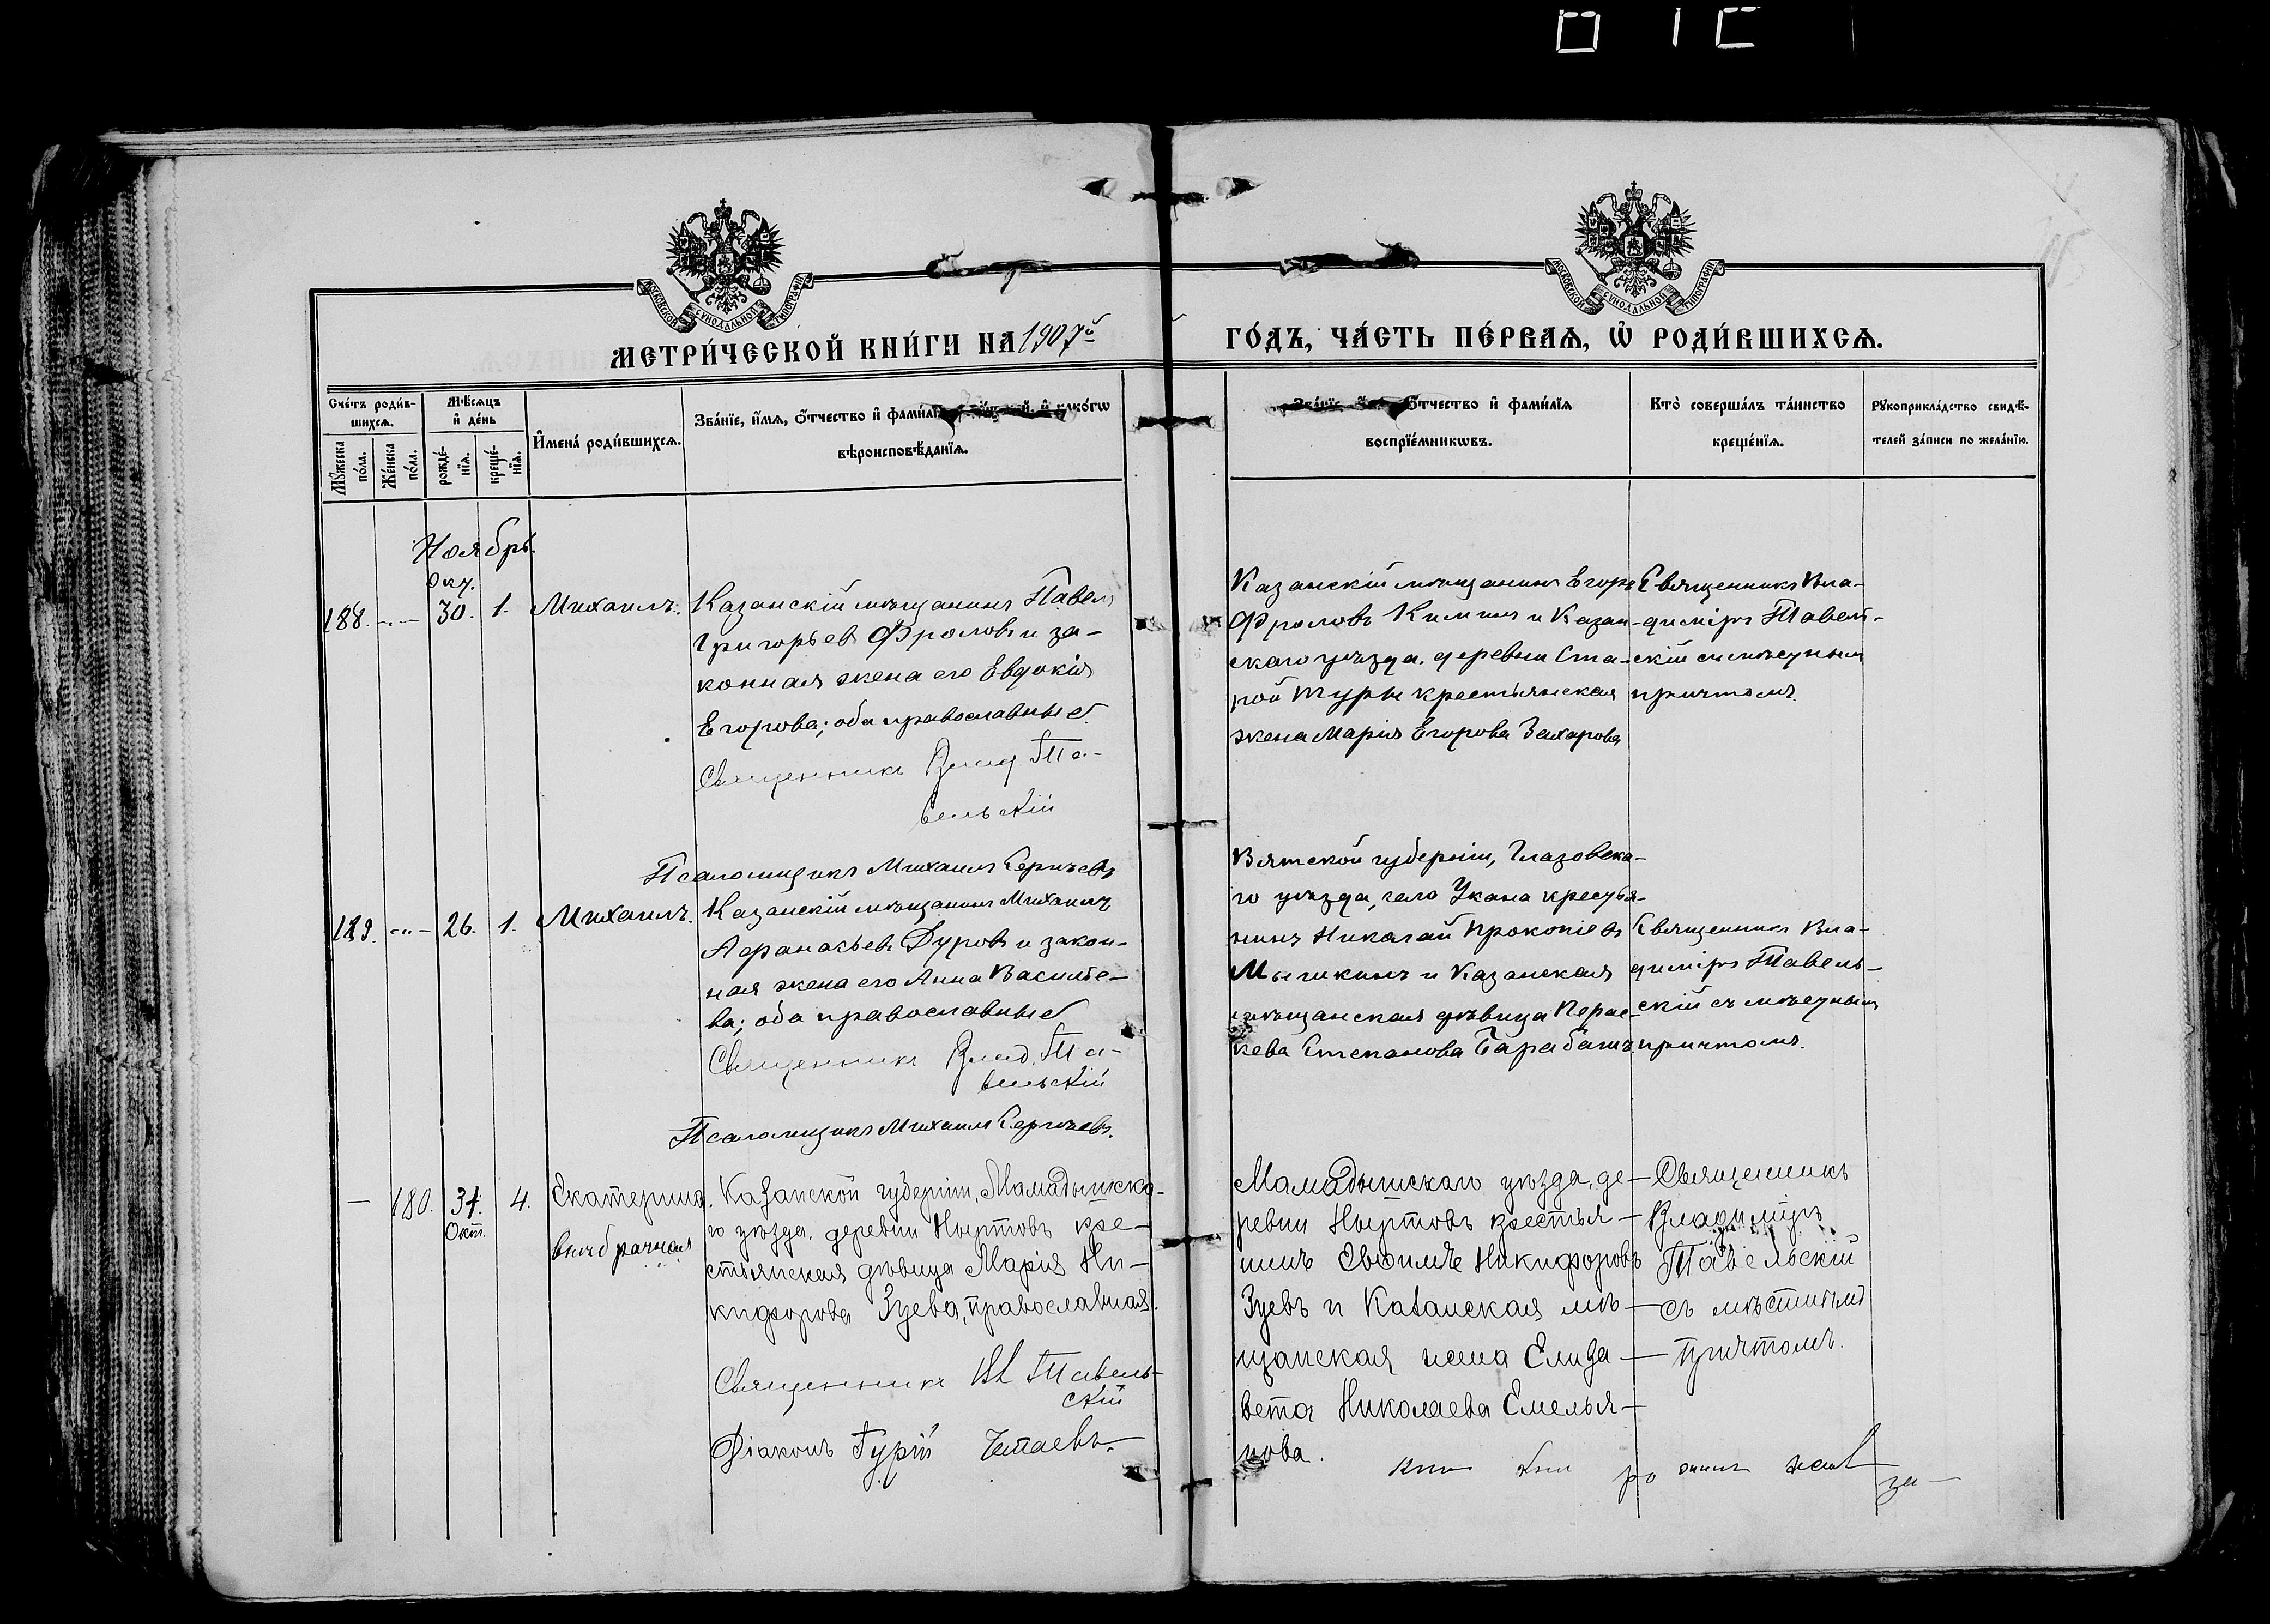 МОСКОВСКОЙ СУНОДАЛЬНОЙ ТИПОГРАФІИ
МОСКОВСКОЙ СУНОДАЛЬНОЙ ТИПОГРАФІИ
МЕТРИ́ЧЕСКОЙ КНИ́ГИ НА 1907й
ГО́ДЪ, ЧА́СТЬ ПЕ́РВАѦ, Ѡ҆ РОДИ́ВШИХСѦ.
Сче́тъ роди́в-
шихсѧ.
Мѣ́сѧцъ
и҆ де́нь
Мꙋ́жеска
по́ла.
Же́нска
по́ла.
рожде́-
нїѧ.
креще́-
нїѧ.
И҆мена̀ роди́вшихсѧ.
Зва́нїе, и҆́мѧ, ѻ҆́тчество и҆ фами́лїѧ и҆ како́гѡ
вѣроисповѣ́данїѧ.
Зва́нїе ѻ҆́тчество и҆ фами́лїѧ
воспрїе́мникѡвъ.
Кто̀ соверша́лъ та́инство
креще́нїѧ.
Рꙋкоприкла́дство свидѣ́-
телей за́писи по жела́нїю.
Ноябрь.
Окт.
188. -"- 30. 1. Михаилъ. Казанскій мѣщанинъ Павелъ
Григорьевъ Фроловъ и за-
конная жена его Евдокія
Егорова; оба православные.
Священникъ Влад Та-
вельскій
Псаломщикъ Михаилъ Сергѣевъ
Казанскій мѣщанинъ Егоръ
Фроловъ Килинъ и Казан-
скаго уѣзда, деревни Ста-
рой Туры крестьянская
жена Марія Егорова Захарова
Священникъ Вла-
диміръ Тавель-
скій съ мѣстнымъ
причтомъ.
189. -"- 26. 1. Михаилъ. Казанскій мѣщанинъ Михаилъ
Афанасьевъ Дуровъ и закон-
ная жена его Анна Василье-
ва; оба православные
Священникъ Влад. Та-
вельскій
Псаломщикъ Михаилъ Сергѣевъ.
Вятской губерніи, Глазовска-
го уѣзда, села Укана кресть-
нинъ Николай Прокопіевъ
Мышкинъ и Казанская
мѣщанская дѣвица Парас-
кева Степанова Барабашъ
Священникъ Вла-
диміръ Тавель-
скій съ мѣстнымъ
причтомъ.
— 180. 31. 4. Екатерина. Казанской губерніи, Мамадышска-
Окт.
внѣбрачная
го уѣзда, деревни Ныртовъ кре-
стьянская дѣвица Марія Ни-
кифорова Зуева, православная.
Священникъ Вл Тавель-
скій
Діаконъ Гурій
Мамадышскаго уѣзда, де-
ревни Ныртовъ крестья-
нинъ Евфимъ Никифоровъ
Зуевъ и Казанская мѣ-
щанская жена Елиза-
вета Николаева Емелья-
нова.
Священникъ
Владиміръ
Тавельскій
съ мѣстнымъ
причтомъ.